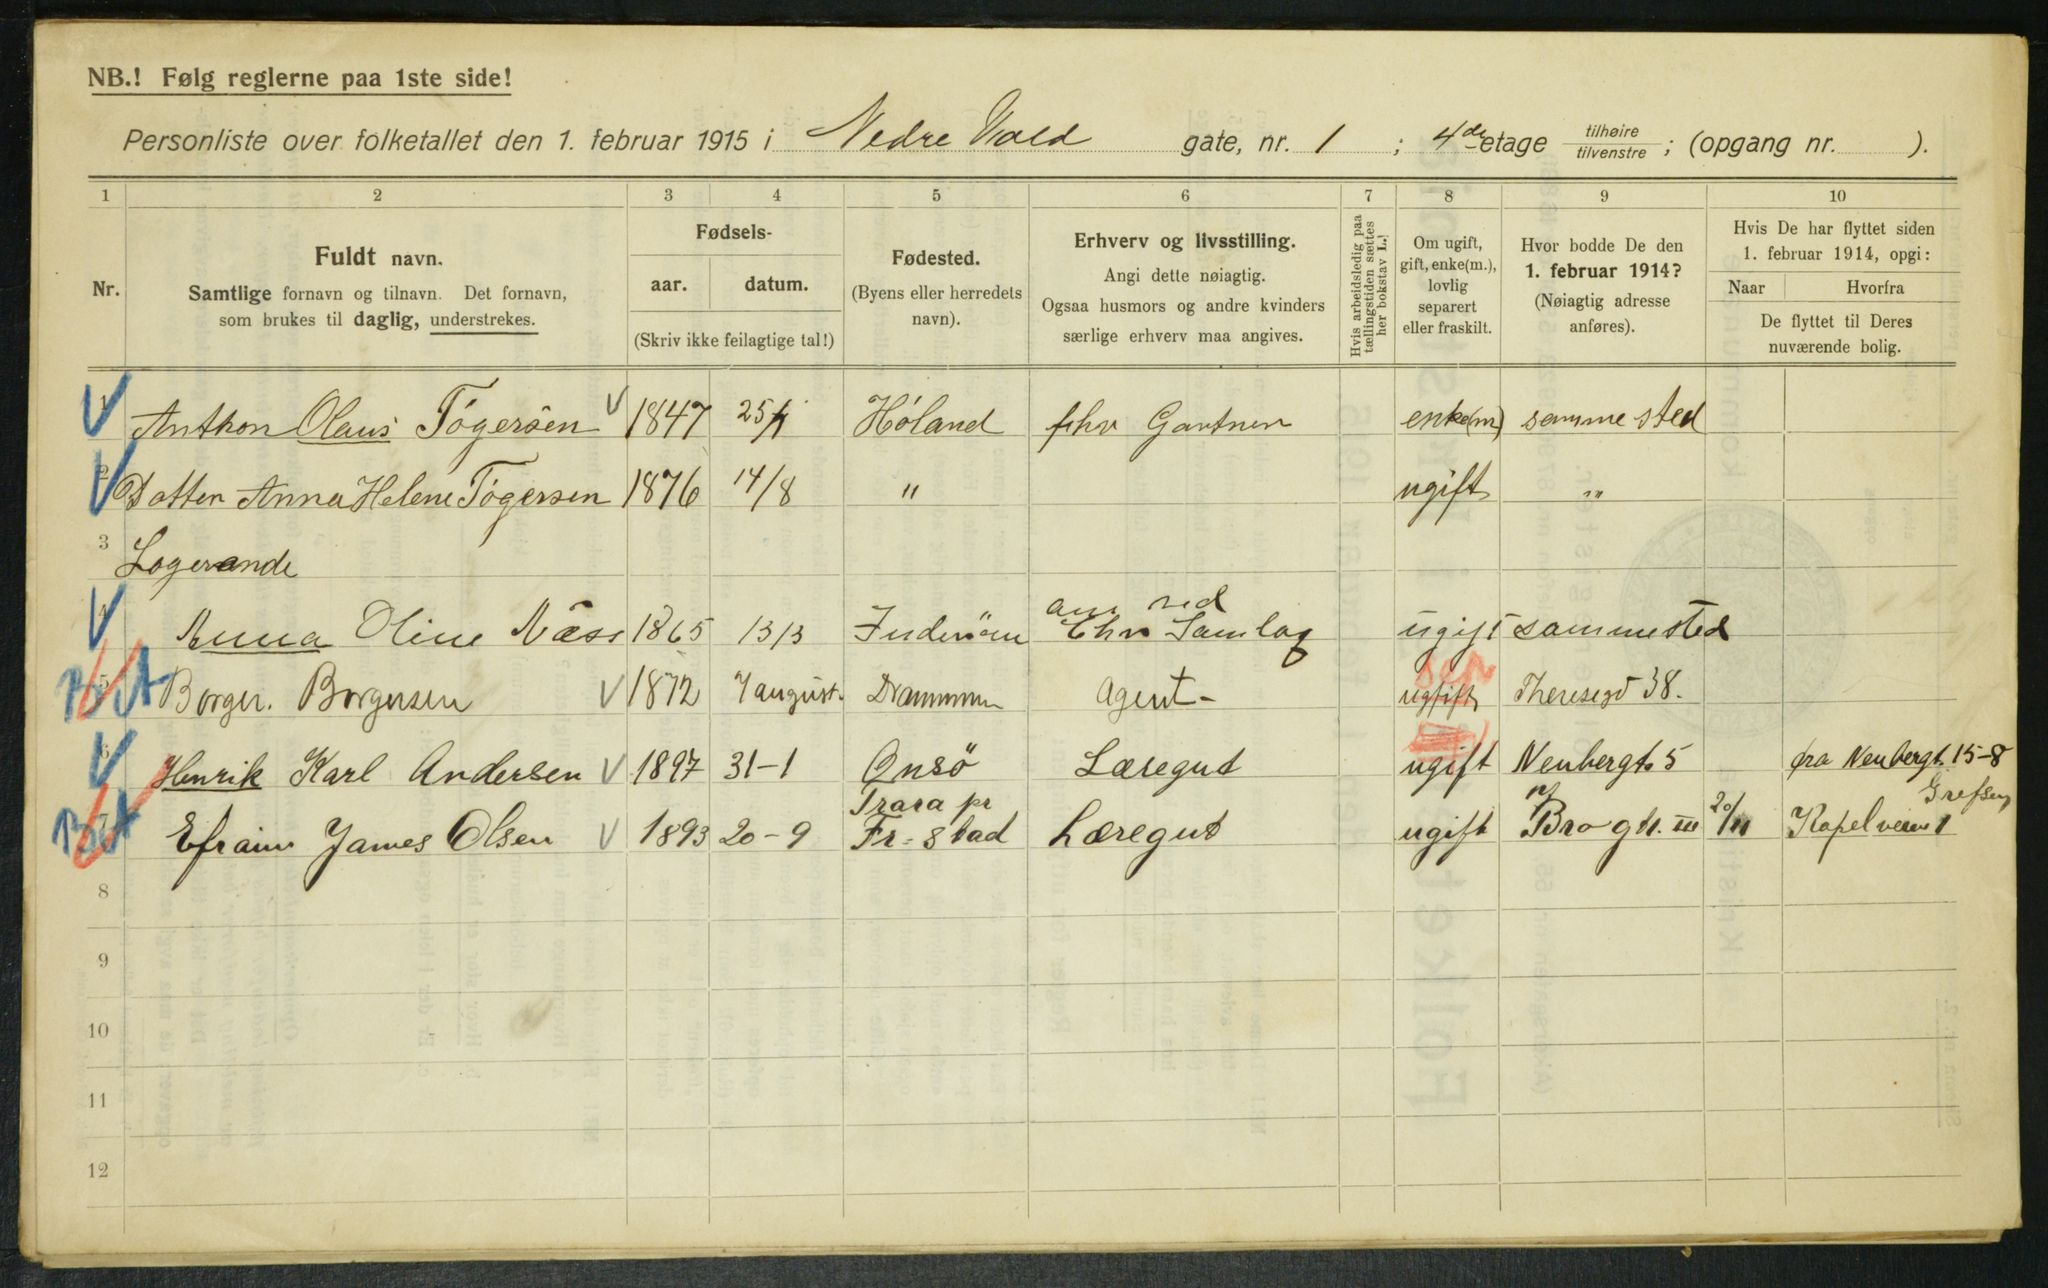 NB.! Følg reglerne paa 1ste side!
Personliste over folketallet den 1. februar 1915 i Nedre Vold gate, nr. 1 ; 4de etage tilhøire tilvenstre ; (opgang nr. ).
1 2 3 4 5 6 7 8 9 10
Nr.
Fuldt navn.
Samtlige fornavn og tilnavn. Det fornavn,
som brukes til daglig, understrekes.
Fødsels-
aar. datum.
(Skriv ikke feilagtige tal!)
Fødested.
(Byens eller herredets
navn).
Erhverv og livsstilling.
Angi dette nøiagtig.
Ogsaa husmors og andre kvinders
særlige erhverv maa angives.
Hvis arbeidsledig paa
tællingstiden sættes
her bokstav L.!
Om ugift,
gift, enke(m.),
lovlig
separert
eller fraskilt.
Hvor bodde De den
1. februar 1914?
(Nøiagtig adresse
anføres).
Hvis De har flyttet siden
1. februar 1914, opgi:
Naar Hvorfra
De flyttet til Deres
nuværende bolig.
1 Anthon Olaus Tögersen 1847 Höland fhv Gartner enke(m) samme sted
2 Datter Anna Helene Tögersen 1876 14/8 " ugift "
3 Logerende
4 Anna Oline Næss 1865 13/3 Inderöen Samlag ugift sammested
5 Borger. Borgersen 1872 7 august. Drammen Agent - ugift Theresegd 38.
sep
6 Henrik Karl Andersen 1897 31-1 Onsö Læregut ugift Neubergt. 5 fra Neubergt. 15-8
7 Efraim James Olsen 1893 20-9 Trara pr Fr-stad Læregut ugift Brogt. III 20/11 Kapelveien 1 Grefsen
8
9
10
11
12